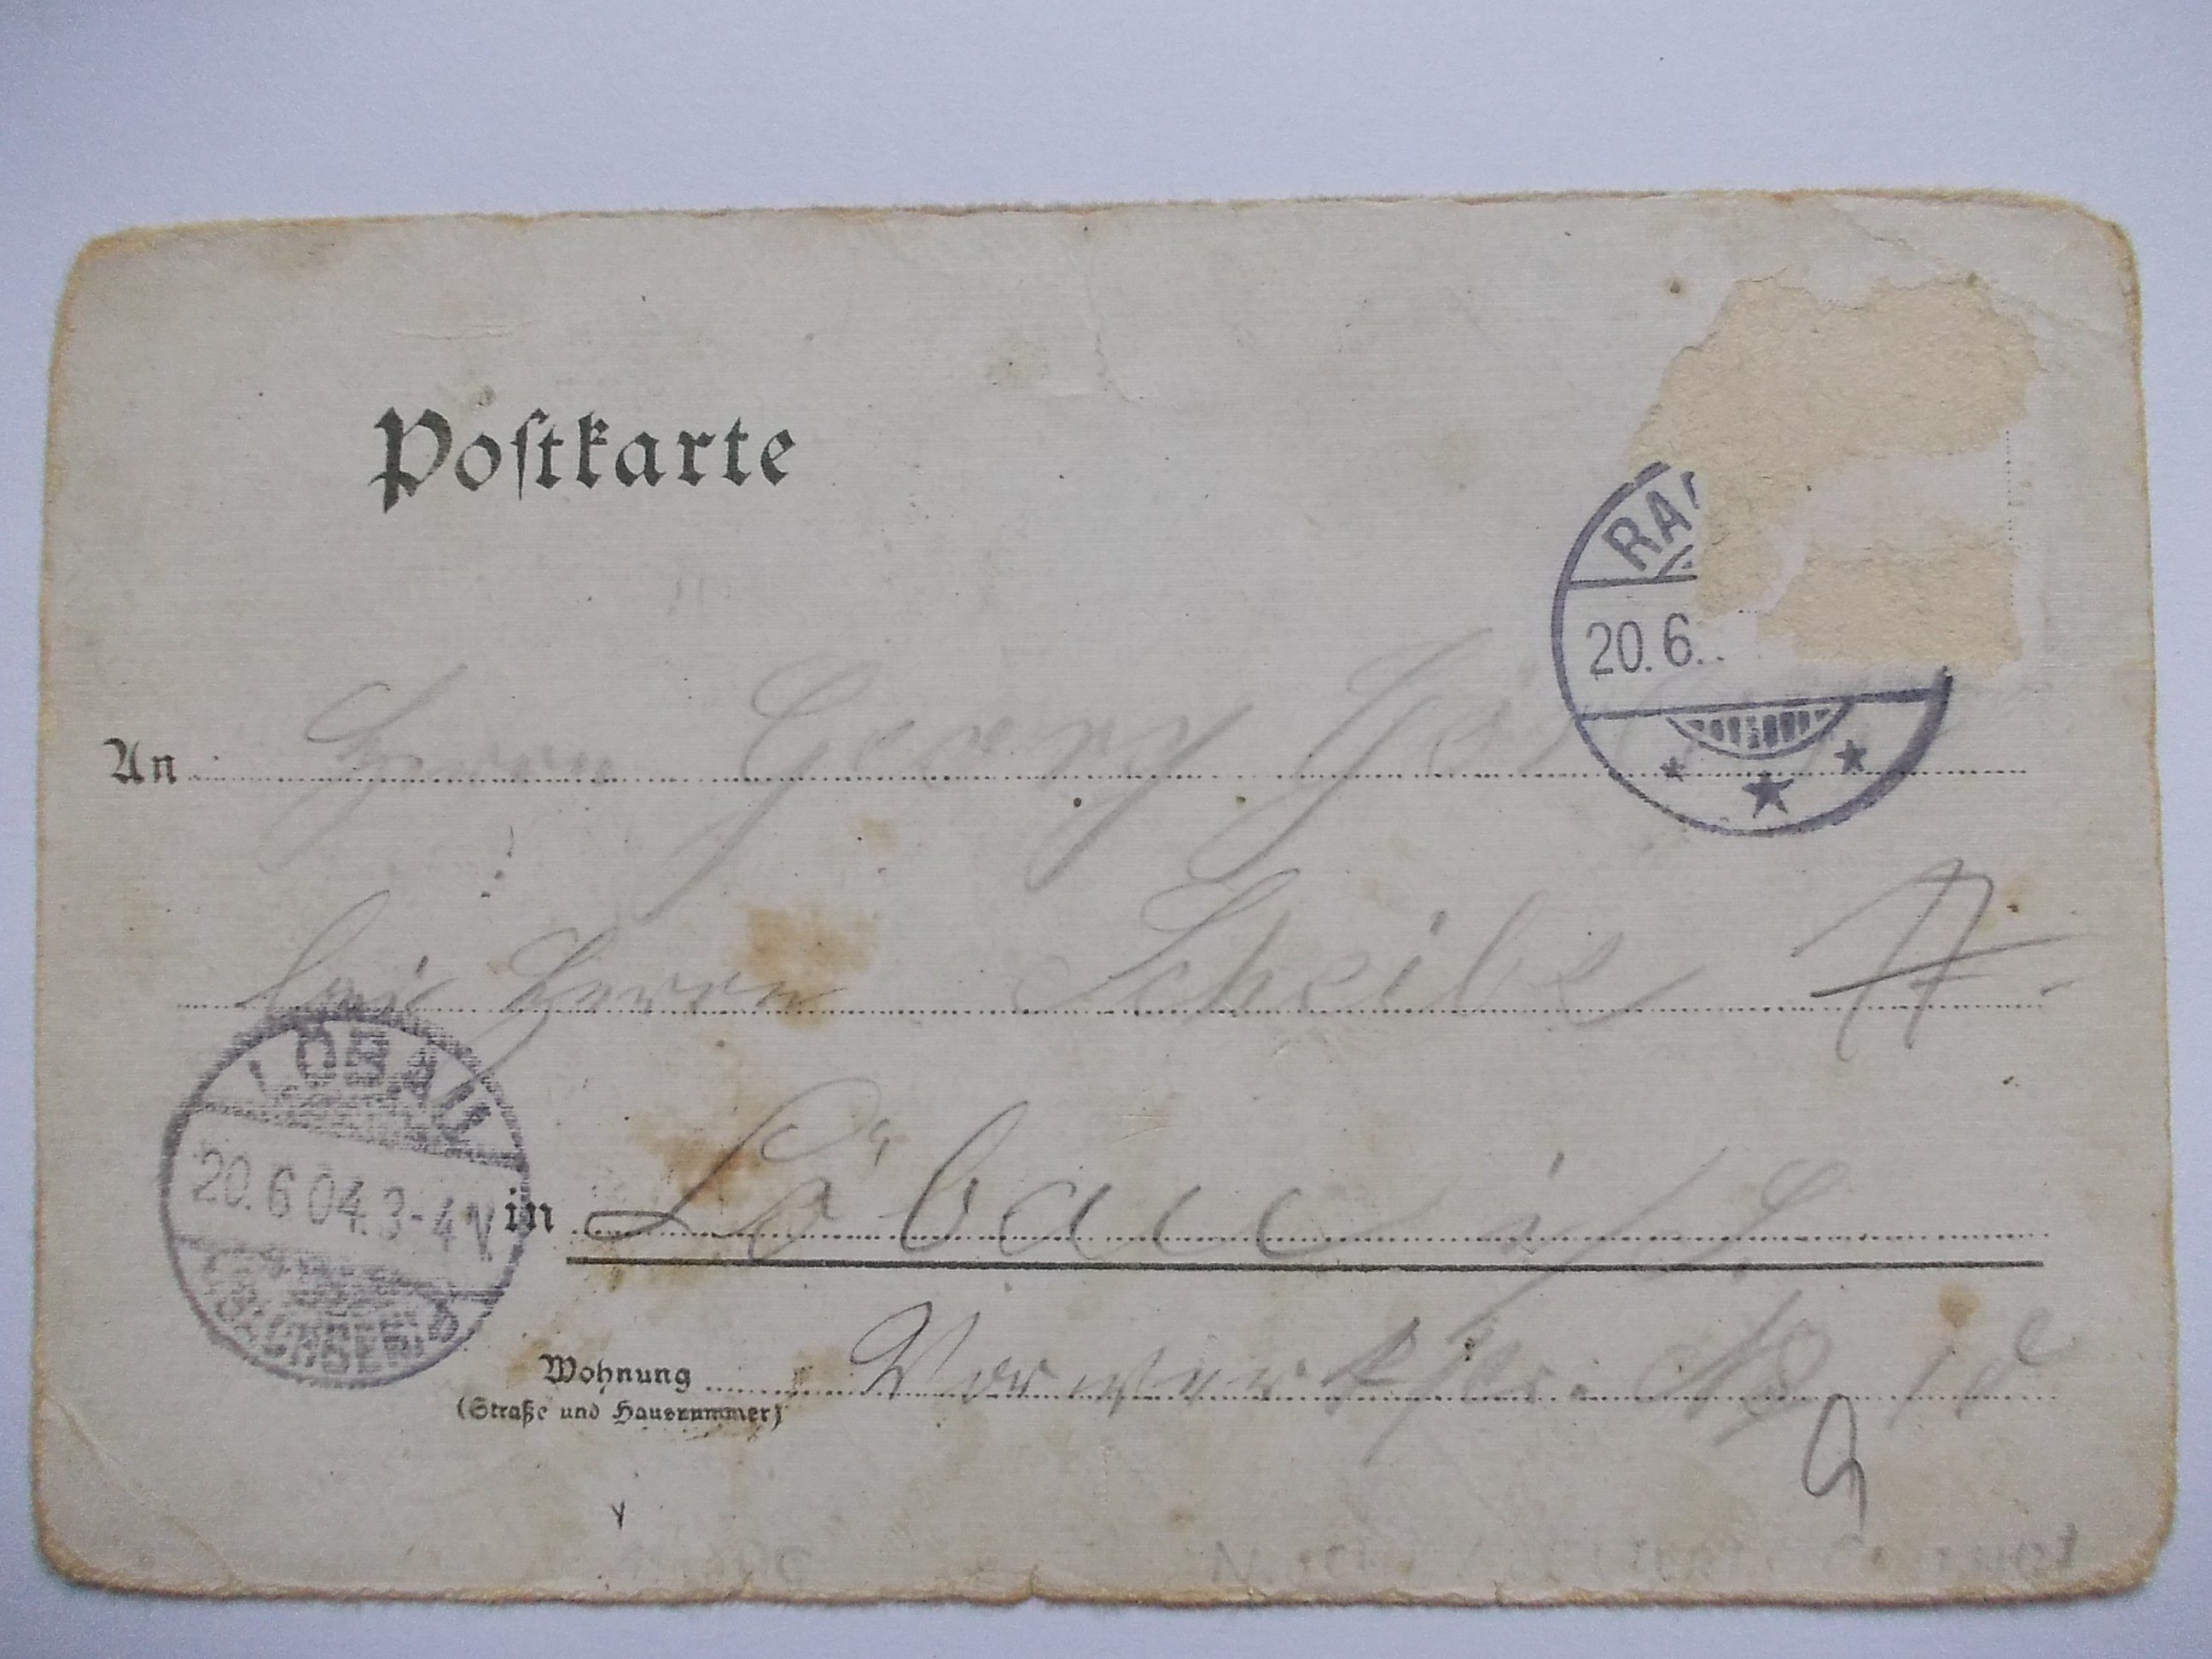 Postkarte
RA
20.6.
An Herrn Georg
bei Herrn Scheibe
LÖBAU
20.6 04. 3-4 V
(SACHSEN)
in Löbau i/S.
Wohnung Vorwerkstr. No
(Straße und Hausnummer)